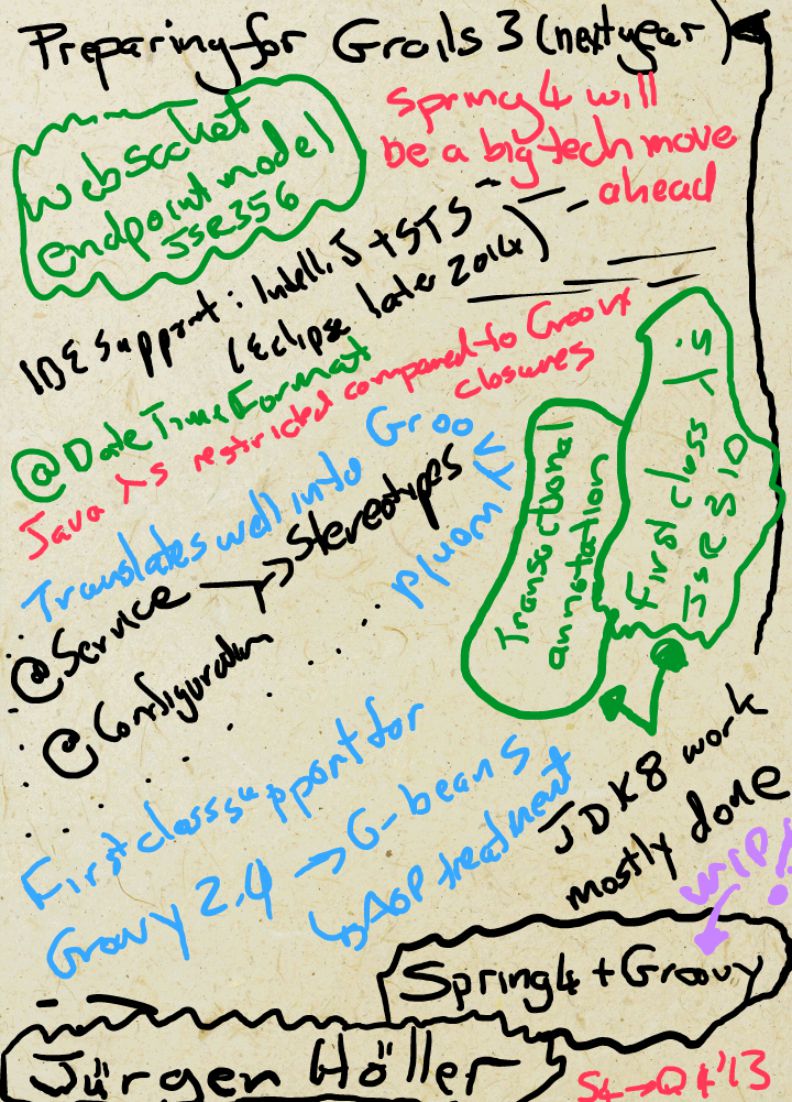 Preparing for Grails 3 (next year)
Spring 4 will
be a big tech move
ahead
WebSocket
endpoint model
JSR356
IDE support: IntelliJ + STS
(Eclipse later 2014)
@DateTimeFormat
Java λs restricted compared to Groovy
closures
Translates well into Groovy
world
@Service → Stereotypes
@Configuration
Transactional
annotation
First class λ's
JSR 310
First class support for
Groovy 2.4 → G-beans
↳ AOP treatment
JDK8 work
mostly done
WIP!
Spring4 + Groovy
Jürgen Höller
S4→Q4'13